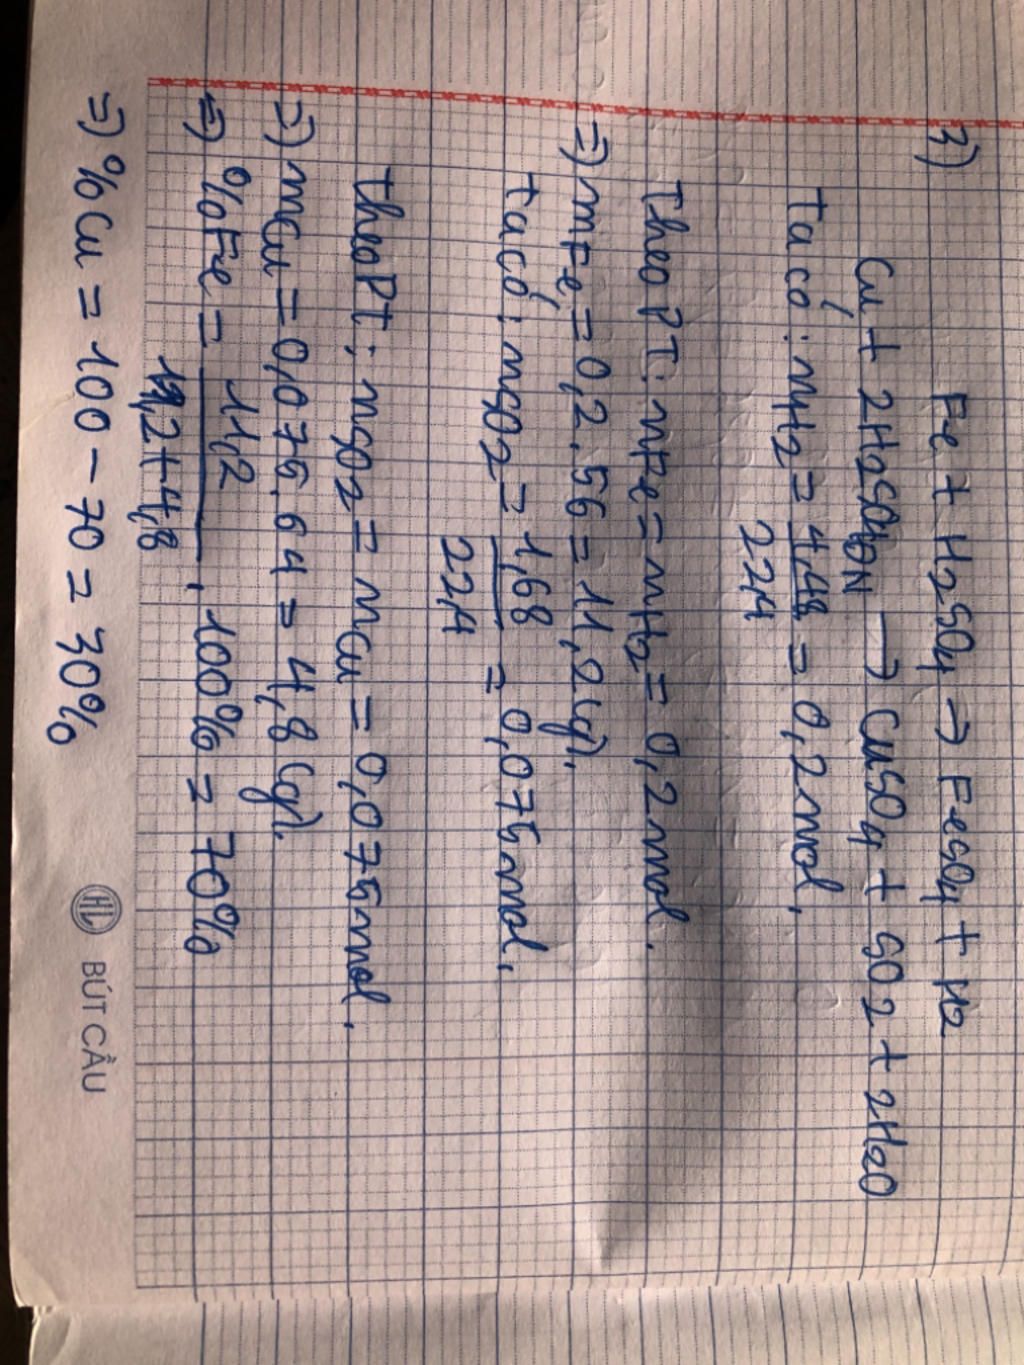 3)
Fe + H2SO4 → FeSO4 + H2
Cu + 2H2SO4 → CuSO4 + SO2 + 2H2O
Ta có: nH2 = 4,48 = 0,2 mol.
22,4
Theo PT: nFe = nH2 = 0,2 mol.
=) mFe = 0,2.56 = 11,2 (g).
ta có: nSO2 = 1,68 = 0,075 mol.
22,4
theo PT: nSO2 = nCu = 0,075 mol.
=) mCu = 0,075.64 = 4,8 (g).
=) %Fe = 11,2 . 100% = 70%
11,2+4,8
=) %Cu = 100 - 70 = 30%
HL BÚT CẦU